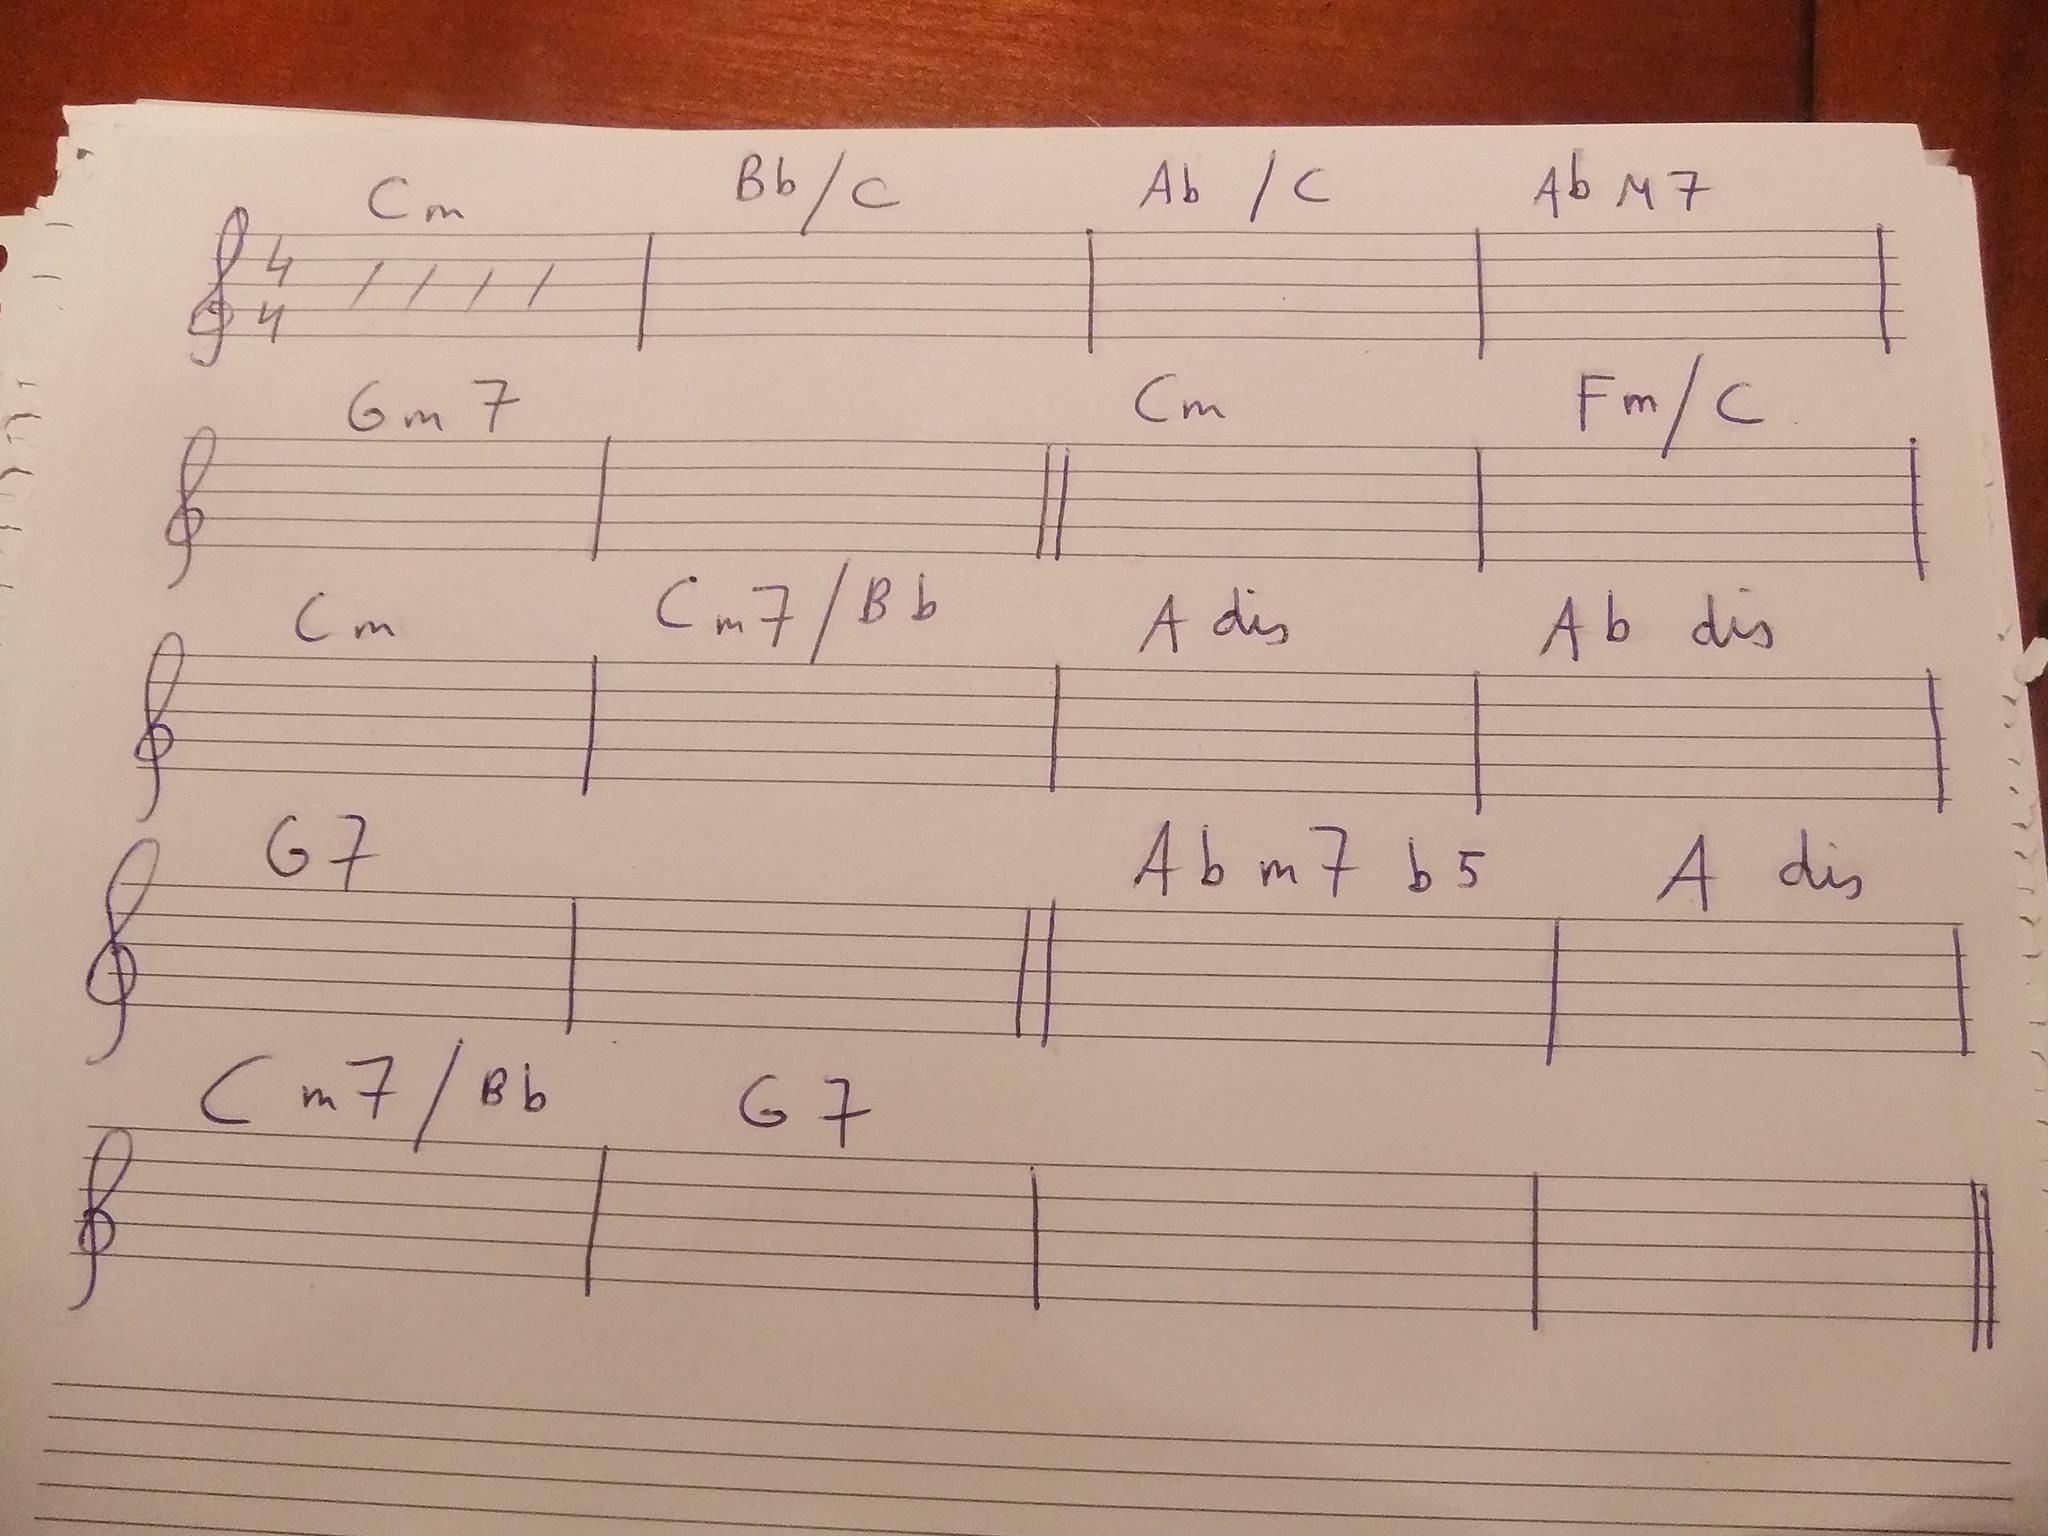 Cm Bb/C Ab/C AbM7
4
4
Gm7 Cm Fm/C
Cm Cm7/Bb A dis Ab dis
G7 Abm7b5 A dis
Cm7/Bb G7